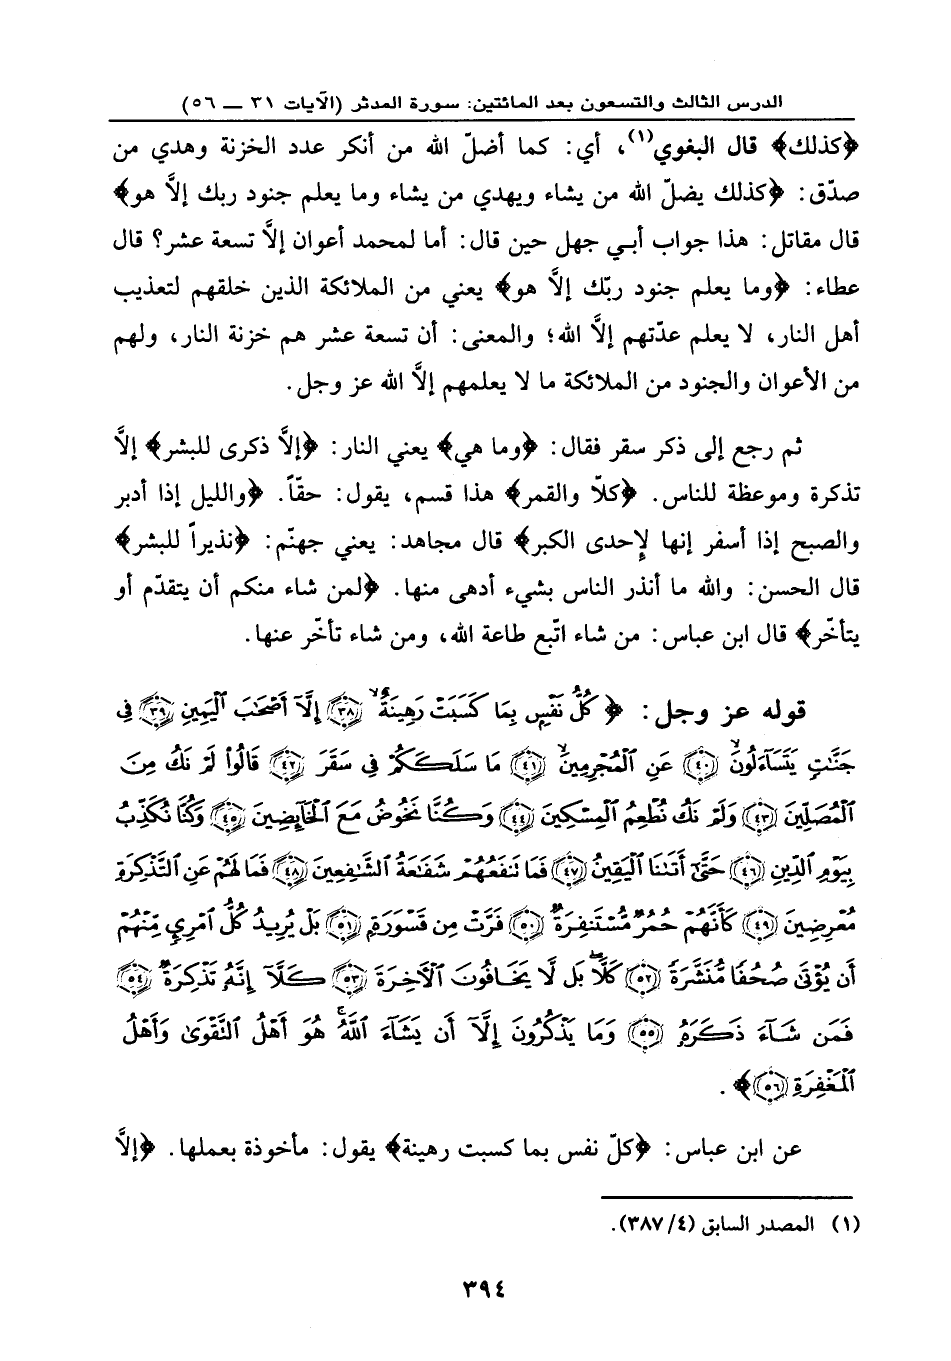 الدرس الثالث والتسعون بعد المائتين: سورة المدثر (الآيات ٣١ — ٥٦)
﴿كذلك﴾ قال البغوي(١)، أي: كما أضلّ الله من أنكر عدد الخزنة وهدي من
صدّق: ﴿كذلك يضلّ الله من يشاء ويهدي من يشاء وما يعلم جنود ربك إلاَّ هو﴾
قال مقاتل: هذا جواب أبي جهل حين قال: أما لمحمد أعوان إلاَّ تسعة عشر؟ قال
عطاء: ﴿وما يعلم جنود ربّك إلاَّ هو﴾ يعني من الملائكة الذين خلقهم لتعذيب
أهل النار، لا يعلم عدّتهم إلاَّ الله؛ والمعنى: أن تسعة عشر هم خزنة النار، ولهم
من الأعوان والجنود من الملائكة ما لا يعلمهم إلاَّ الله عز وجل.
ثم رجع إلى ذكر سقر فقال: ﴿وما هي﴾ يعني النار: ﴿إلاَّ ذكرى للبشر﴾ إلاَّ
تذكرة وموعظة للناس. ﴿كلاّ والقمر﴾ هذا قسم، يقول: حقّاً. ﴿والليل إذا أدبر
والصبح إذا أسفر إنها لإحدى الكبر﴾ قال مجاهد: يعني جهنّم: ﴿نذيراً للبشر﴾
قال الحسن: والله ما أنذر الناس بشيء أدهى منها. ﴿لمن شاء منكم أن يتقدّم أو
يتأخّر﴾ قال ابن عباس: من شاء اتّبع طاعة الله، ومن شاء تأخّر عنها.
قوله عز وجل: ﴿كُلُّ نَفْسٍ بِمَا كَسَبَتْ رَهِينَةٌ ﴿٣٨﴾ إِلَّآ أَصْحَٰبَ ٱلْيَمِينِ ﴿٣٩﴾ فِى
جَنَّٰتٍ يَتَسَآءَلُونَ ﴿٤٠﴾ عَنِ ٱلْمُجْرِمِينَ ﴿٤١﴾ مَا سَلَكَكُمْ فِى سَقَرَ ﴿٤٢﴾ قَالُوا۟ لَمْ نَكُ مِنَ
ٱلْمُصَلِّينَ ﴿٤٣﴾ وَلَمْ نَكُ نُطْعِمُ ٱلْمِسْكِينَ ﴿٤٤﴾ وَكُنَّا نَخُوضُ مَعَ ٱلْخَآئِضِينَ ﴿٤٥﴾ وَكُنَّا نُكَذِّبُ
بِيَوْمِ ٱلدِّينِ ﴿٤٦﴾ حَتَّىٰٓ أَتَىٰنَا ٱلْيَقِينُ ﴿٤٧﴾ فَمَا تَنفَعُهُمْ شَفَٰعَةُ ٱلشَّٰفِعِينَ ﴿٤٨﴾ فَمَا لَهُمْ عَنِ ٱلتَّذْكِرَةِ
مُعْرِضِينَ ﴿٤٩﴾ كَأَنَّهُمْ حُمُرٌ مُّسْتَنفِرَةٌ ﴿٥٠﴾ فَرَّتْ مِن قَسْوَرَةٍ ﴿٥١﴾ بَلْ يُرِيدُ كُلُّ ٱمْرِئٍ مِّنْهُمْ
أَن يُؤْتَىٰ صُحُفًا مُّنَشَّرَةً ﴿٥٢﴾ كَلَّا بَل لَّا يَخَافُونَ ٱلْءَاخِرَةَ ﴿٥٣﴾ كَلَّآ إِنَّهُۥ تَذْكِرَةٌ ﴿٥٤﴾
فَمَن شَآءَ ذَكَرَهُۥ ﴿٥٥﴾ وَمَا يَذْكُرُونَ إِلَّآ أَن يَشَآءَ ٱللَّهُ هُوَ أَهْلُ ٱلتَّقْوَىٰ وَأَهْلُ
ٱلْمَغْفِرَةِ ﴿٥٦﴾﴾.
عن ابن عباس: ﴿كلّ نفس بما كسبت رهينة﴾ يقول: مأخوذة بعملها. ﴿إلاَّ
(١) المصدر السابق (٤/٣٨٧).
٣٩٤